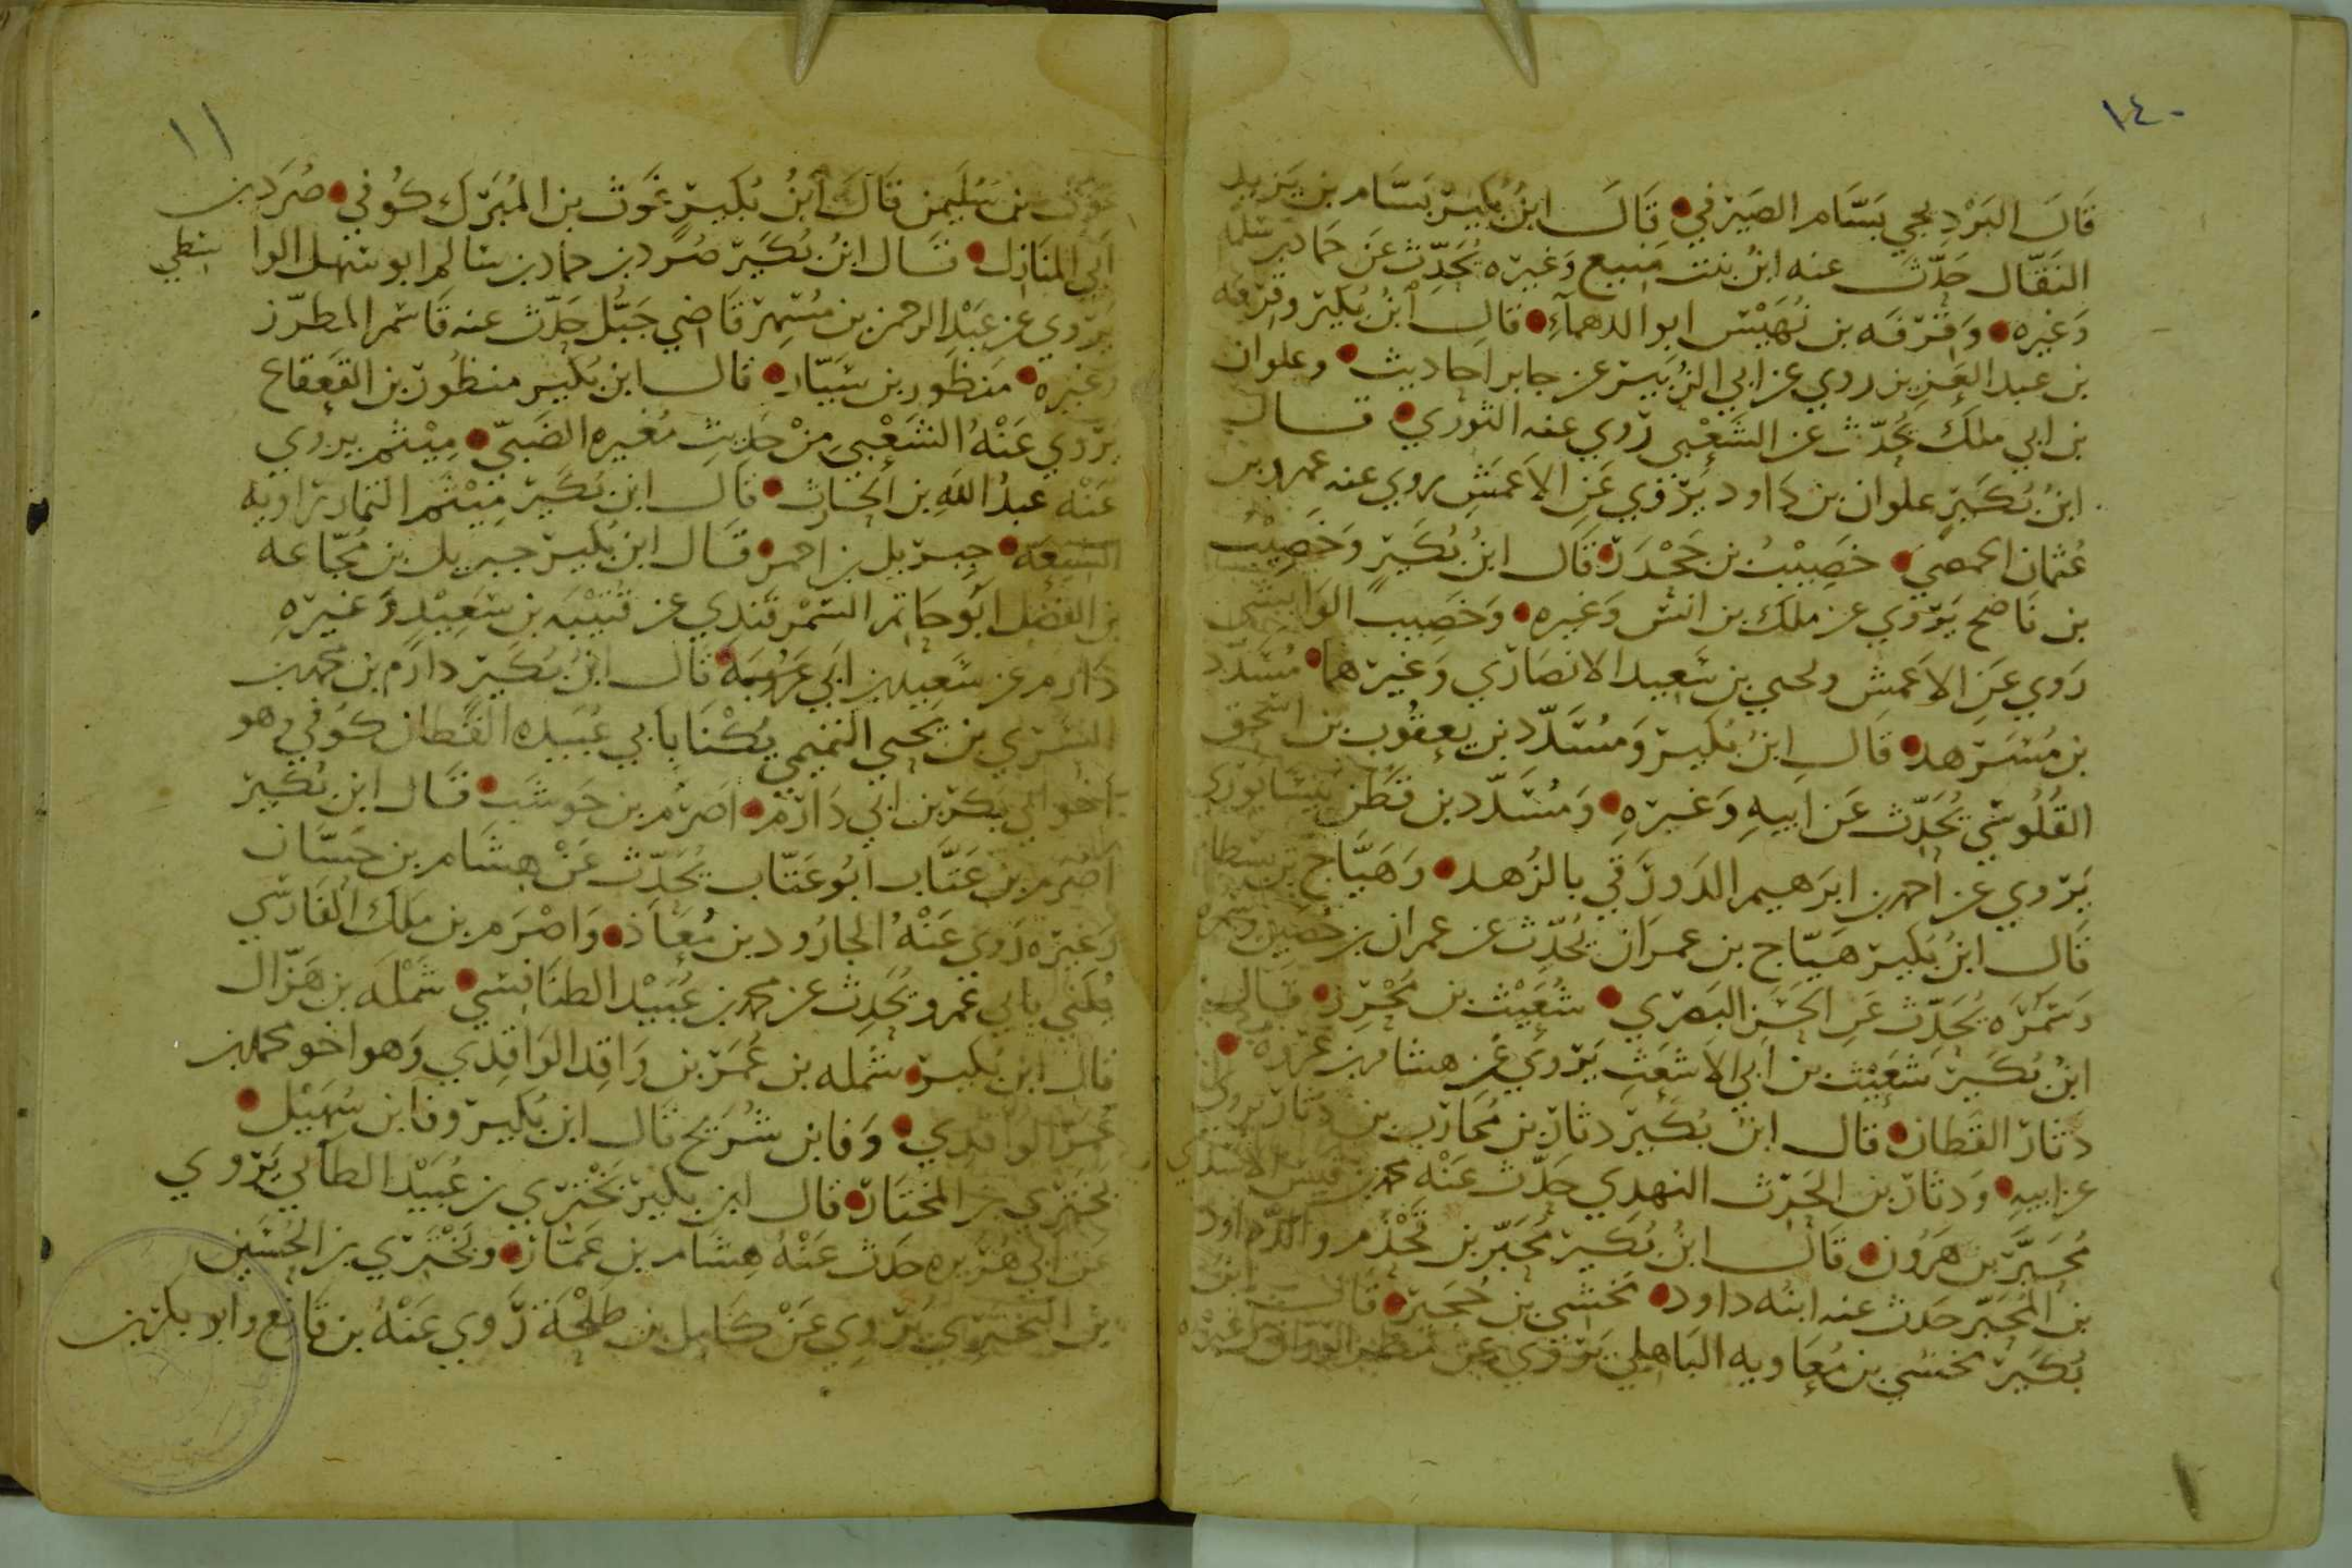 ١٤٠
قَالَ البَرْدِيجي بَسَّام الصَيرَفي قَالَ ابنُ بُكَيْر بَسَّام بن يَزيد
النَقّال حَدّث عنه ابنُ بنت مَنيع وَغَيره يُحَدِّث عَن حَماد بن سَلمه
وَغيره وَقَرْفَه بن بُهَيْس ابو الدهمآءِ قَالَ ابنُ بُكَير وقِرْفه
بن عبد العَزيز روي عن ابي الزُبَير عن جابر احاديث وعلوان
بن ابي ملك يُحَدّث عن الشَعْبي رَوي عنه الثوري قال
ابنُ بُكَيرٍ علوان بن دَاود يَرْوي عَنِ الاَعمَشِ روي عنه عمرو بن
عُثمان الحمصي خَصِيْبُ بن جَحْدَر قَالَ ابنُ بُكَيرٍ وَخَصِيْبُ
بن نَاصح يَرْوي عن ملك بن انس وَغيره وَخَصِيب الوَابِشي
رَوي عَنِ الاَعمَشِ ويحيي بن سَعيد الانصَارَي وَغيرهما مُسَدَّد
بن مُسَرهد قَالَ ابنُ بُكَير وَمُسَدّد بن يعقُوب بن اسحق
القُلُوسي يُحَدّث عَن اَبيهِ وَغيرهِ وَمُسَدّد بن قَطَن نيسَابوري
يَرْوي عن احمد بن ابرَهيم الدَورَقي بالزُهد وَهَيَّاج بن بسطام
قَالَ ابنُ بُكَير هَيّاج بن عمرَان يُحَدِّث عن عمران بن حُصَين وسَمره
وَسَمُرَه يُحَدّث عَنِ الحَسَنِ البَصَري شُعَيْث بن مُحْرِز قال
ابنُ بُكَيرٍ شُعَيْث بن ابي الاَشعَث يَروي عَن هشام بن عُروه
دثار القَطان قال ابنُ بُكَير دثار بن مُحَارب بن دثار يروي
عن ابيهِ وَدثار بن الحَرث النهدي حَدّث عَنْه محمد بن قيس الاسَدي
مُحَبَّر بن هَرُون قَالَ ابنُ بُكَير مُحَبّر بن قَحْذم والد داود
بن المُحَبّر حَدث عنه ابنه داود نخشي بن حُجَير قَالَ ابنُ
بُكَير نخشي بن مُعَاويه البَاهلي يَرْوي عن مَطر الوَراق وغيره
١١
غَوث بن سُلَيمن قَالَ ابنُ بُكَير غَوث بن المُبَرَك كُوفي صُرَد بن
اَبي المَنَازل قَال ابنُ بُكَير صُرَد بن حماد بن سَالم ابو سَهل الوا سطي
يَرْوي عن عَبْد الرحمن بن مُسْهِر قَاضي جَبُّل حَدّث عنه قاسم المطرّز
وغيره مَنظور بن سَيّار قالَ ابن بُكَير منظُور بن القَعقاع
يَرْوي عَنْهُ الشَعْبي مِنْ حَديثِ مُغيره الضَبيّ مِيْثم يروي
عَنْه عَبدُ اللهِ بن الخَبّاب قَالَ ابنُ بُكَير مِيْثم التمار رَاويه
الشيعَه جِبريل بن احمر قَال ابن بُكَير جبريل بن مُجّاعه
بن الفَضل ابُو حاتم السَمرقَندي عن قُتيْبَه بن سَعِيْدٍ وَغيرهِ
دَارم عن سَعِيد بن ابَي عَرُوبَهَ قَالَ ابنُ بُكَير دارَم بن محمد بن
السَري بن يَحيي التميمي يُكْنَا بابي عُبَيده القَطان كوفي وهو
اَخو ابي بَكر بن ابي دَارَم اصَرَم بن حَوشَب قَال ابن بُكَير
اَصْرَم بن عَتّاب ابُو عَتّاب يُحَدّث عَنْ هِشَام بن حَسّان
وَغيره رَوي عَنْهُ الجارُود بن مُعَاذ وَاصْرَم بن ملك الفَارسي
يُكَني بابي عَمرو يُحَدِث عن محمد بن عُبَيْد الطنَافسي شَمْلَه بن هَزّال
قال ابن بُكَير شَمله بن عُمَر بن وَاقِد الوَاقِدي وَهو اخو محمد بن
عُمَر الواقدي وَفا بن شُرَيح قَال ابن بُكَير وفا بن سُهَيْل
بَختَري بن المختَار قَالَ ابن بُكير بَخْتَري بن عُبَيْد الطآئي يَرْوي
عَن ابي هُرَيره حَدث عَنْهُ هِشَام بن عَمّار وبَخْتَري بن الحُسَين
بن البَختري يَرْوِي عَنْ كَامِل بن طَلْحَهَ رَوي عَنْهُ بن قَانع وابو بكر بن